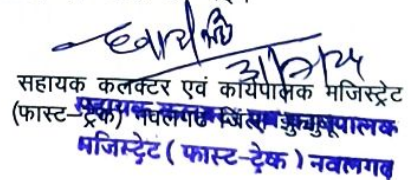 सहायक कलक्टर एवं कार्यपालक मजिस्ट्रेट
(फास्ट-ट्रेक) नवलगढ जिला झुन्झुनू
सहायक कलक्टर एवं कार्यपालक
मजिस्ट्रेट ( फास्ट-ट्रेक ) नवलगढ